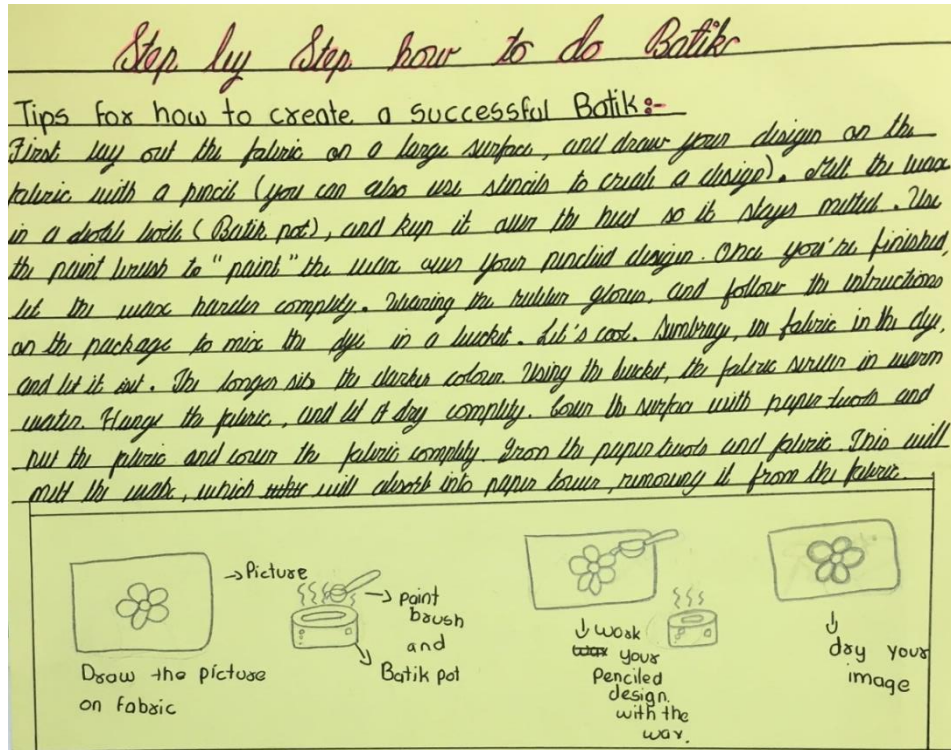 Step by Step how to do Batik
Tips for how to create a successful Batik:-
First lay out the fabric on a large surface, and draw your design on the
fabric with a pincil (you can also use stencils to create a design). Melt the wax
in a (Batik pot), and keep it over the heat so it stays melted. Use
the paint brush to "paint" the wax over your pencled design. Once you're finished,
let the wax harden complity. Wearing the rubber gloves, and follow the intructions
on the package to mix the dye in a bucket. Let's cool. fabric in the dye,
and let it The longer sits the darker colour. Using the bucket, the fabric in warm
water. Hange the fabric, and let it dry complity. Cover the surface with paper and
put the and cover the fabric complity. Iron the paper and fabric. This will
melt the, which will absorb into paper, removing it from the fabric.
→Picture
→ paint
brush
and
Batik pot
Draw the picture
on fabric
work
your
Penciled
design.
with the
wax.
dry your
image